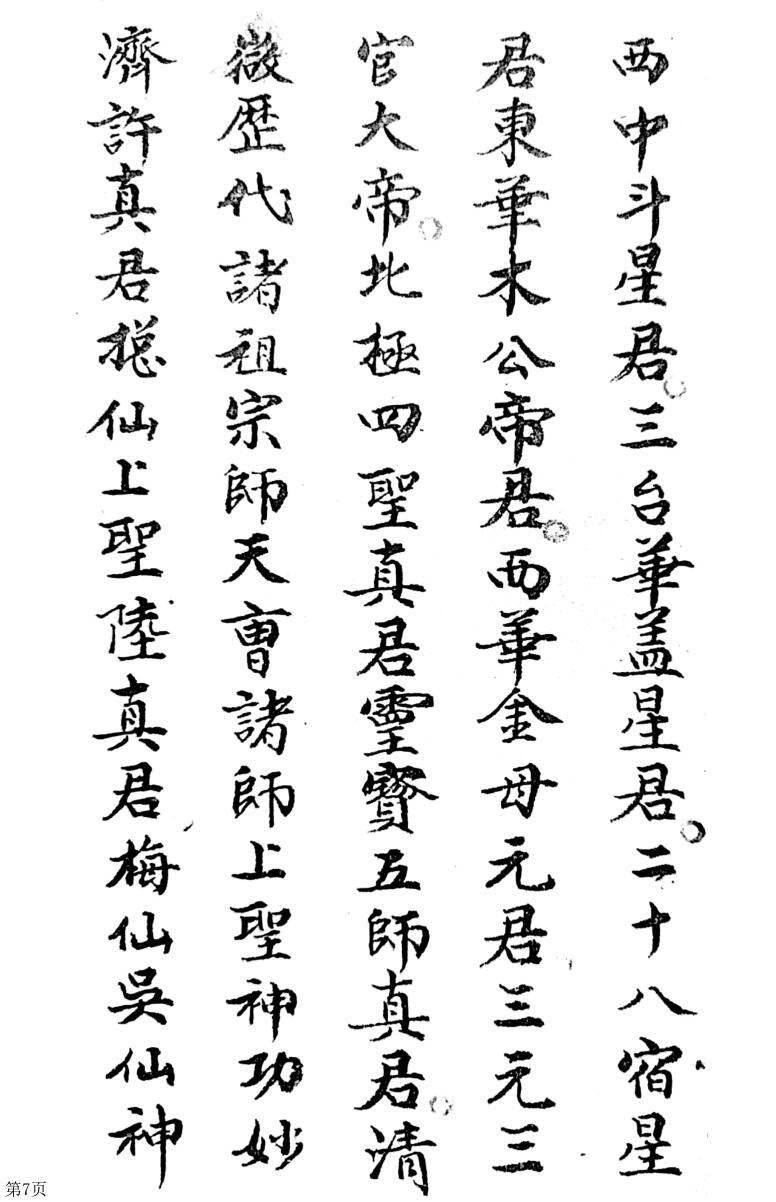 西中斗星君三台華盖星君二十八宿星
君東華木公帝君西華金母元君三元三
官大帝北極四聖真君靈寳五師真君清
微歴代諸祖宗師天曺諸師上聖神功妙
濟許真君揔仙上聖陸真君梅仙吳仙神
第7页